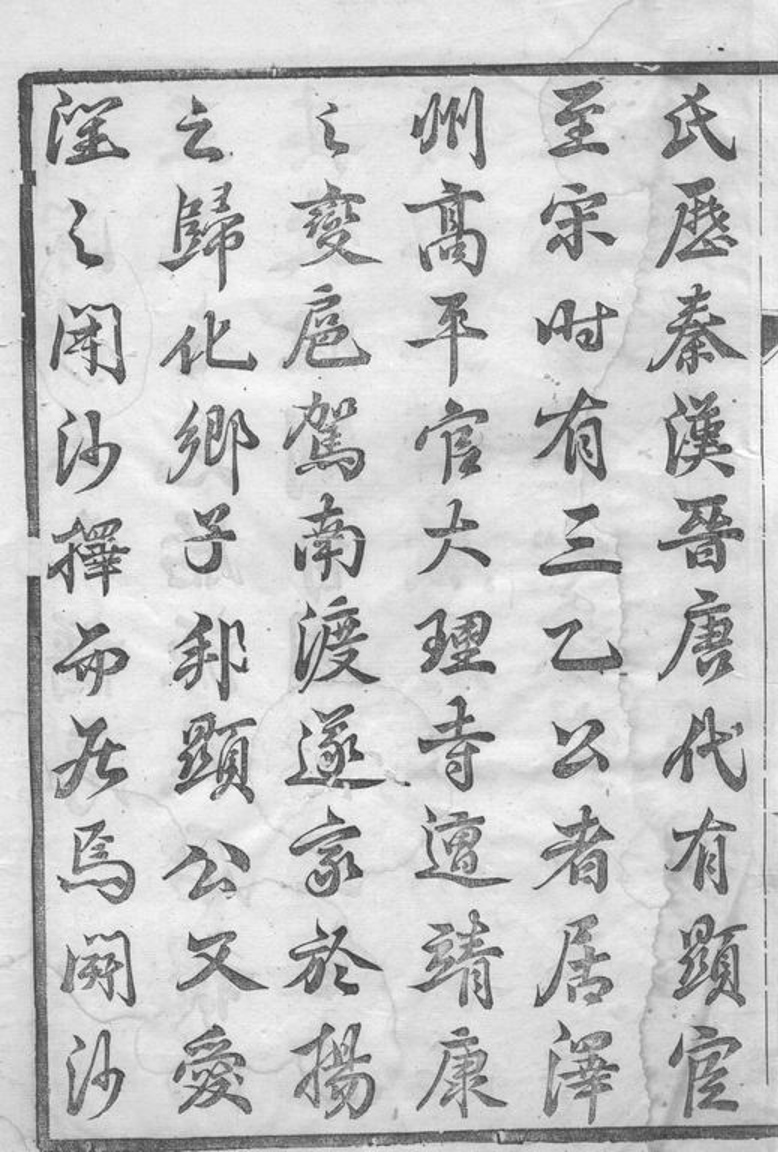 氏歷秦漢晉唐代有顯官
至宋时有三乙公者居澤
州髙平官大理寺遭靖康
之變扈駕南渡遂家於揚
之歸化鄉子邦顯公又愛
潤之開沙擇而居焉開沙